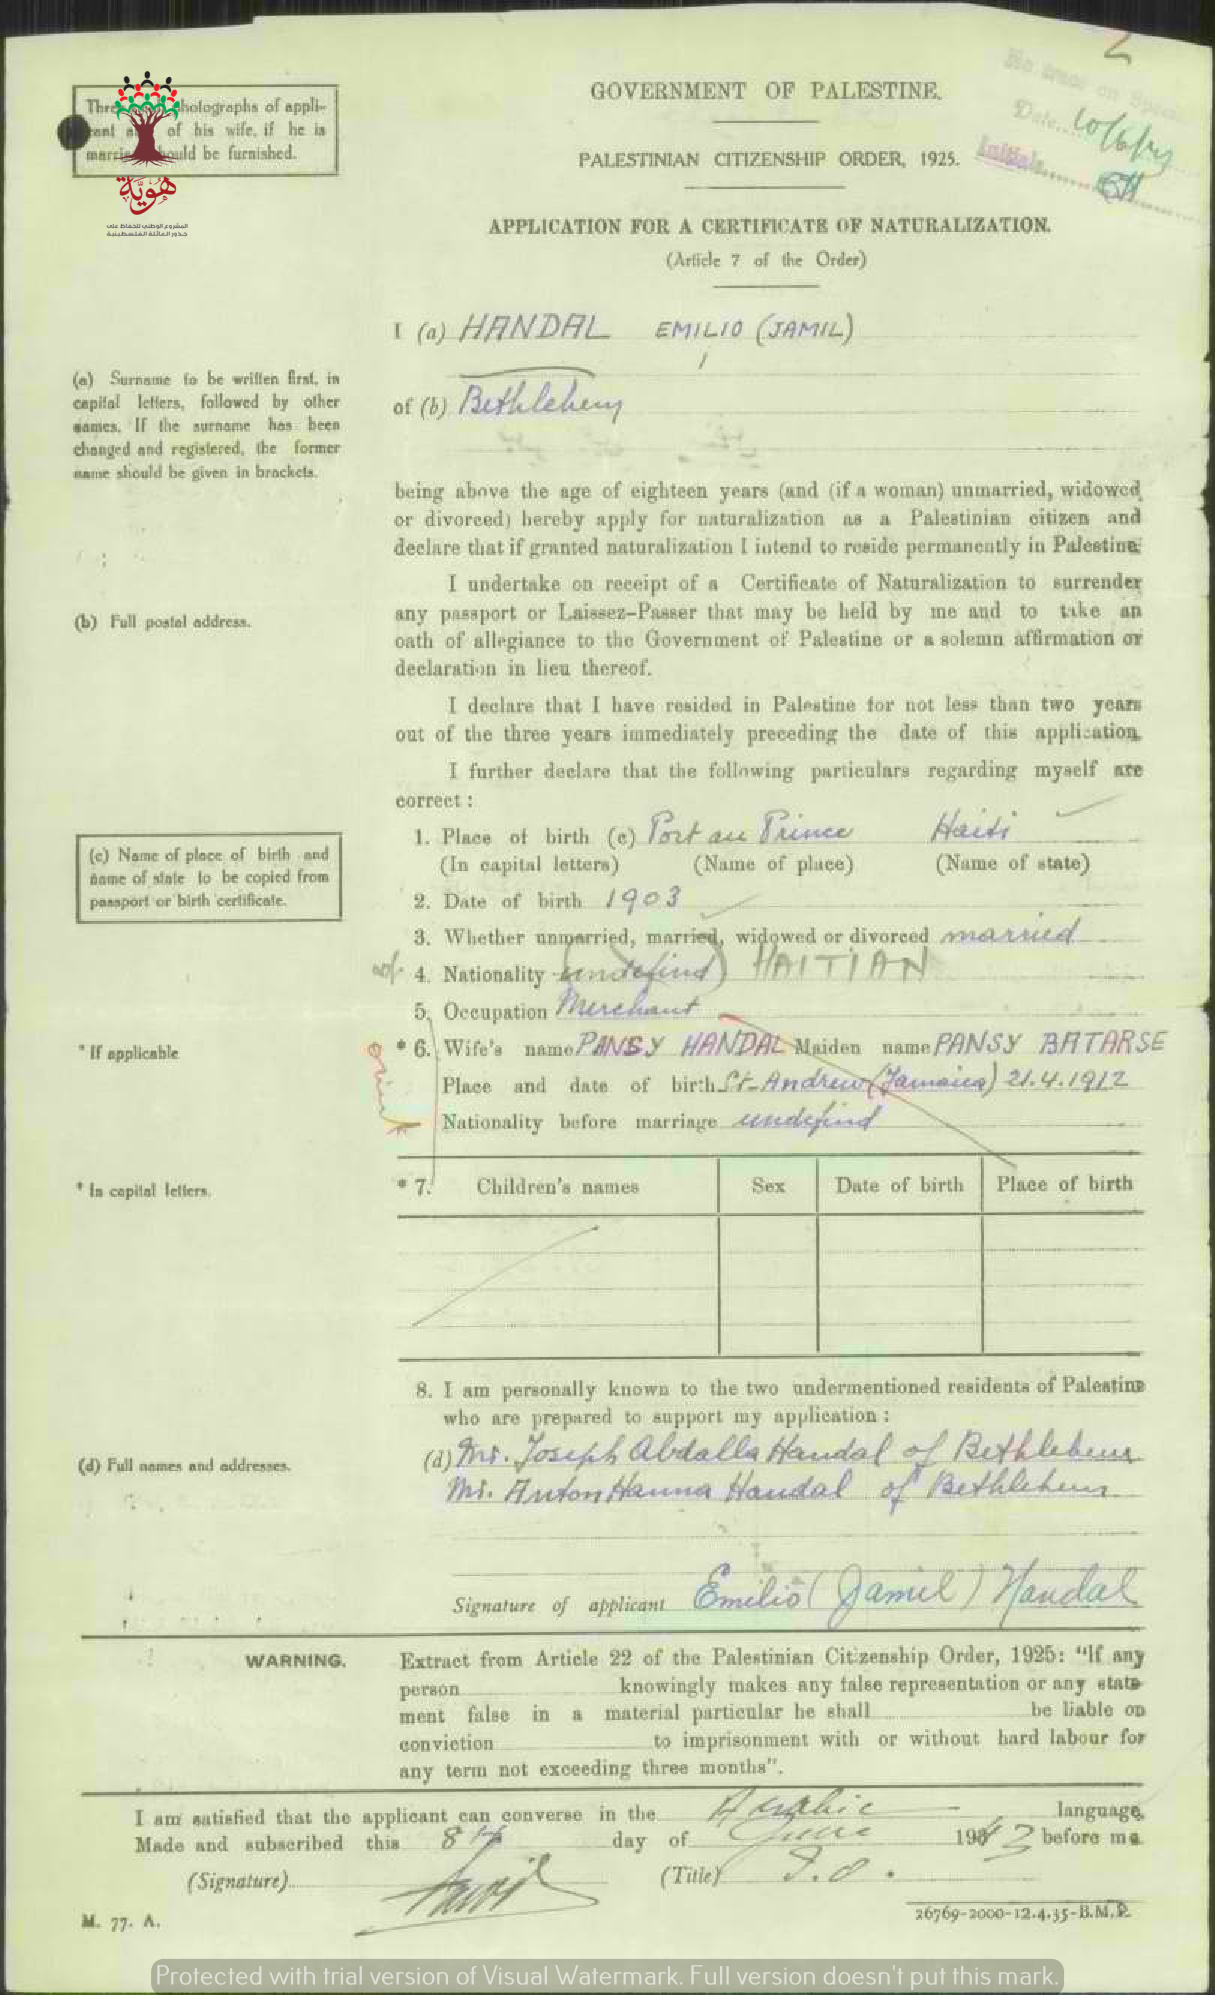 2
No trace on
Date... 10/6/43
Initials...
Three photographs of appli-
cant and of his wife, if he is
married should be furnished.
هويّة
المشروع الوطني للحفاظ على
جذور العائلة الفلسطينية
GOVERNMENT OF PALESTINE.
PALESTINIAN CITIZENSHIP ORDER, 1925.
APPLICATION FOR A CERTIFICATE OF NATURALIZATION.
(Article 7 of the Order)
I (a) HANDAL EMILIO (JAMIL)
(a) Surname to be written first, in
capital letters, followed by other
names. If the surname has been
changed and registered, the former
name should be given in brackets.
of (b) Bethlehem
being above the age of eighteen years (and (if a woman) unmarried, widowed
or divorced) hereby apply for naturalization as a Palestinian citizen and
declare that if granted naturalization I intend to reside permanently in Palestine
I undertake on receipt of a Certificate of Naturalization to surrender
(b) Full postal address.
any passport or Laissez-Passer that may be held by me and to take an
oath of allegiance to the Government of Palestine or a solemn affirmation or
declaration in lieu thereof.
I declare that I have resided in Palestine for not less than two years
out of the three years immediately preceding the date of this application.
I further declare that the following particulars regarding myself are
correct :
(c) Name of place of birth and
name of state to be copied from
passport or birth certificate.
1. Place of birth (c) Port au Prince Haiti
(In capital letters) (Name of place) (Name of state)
2. Date of birth 1903
3. Whether unmarried, married, widowed or divorced married
4. Nationality (undefind) HAITIAN
5. Occupation Merchant
* If applicable
* 6. Wife's name PANSY HANDAL Maiden name PANSY BATARSE
Place and date of birth St-Andrew (Jamaica) 21.4.1912
Nationality before marriage undefind
* In capital letters.
* 7. Children's names Sex Date of birth Place of birth
8. I am personally known to the two undermentioned residents of Palestine
who are prepared to support my application :
(d) Full names and addresses.
(d) Mr. Joseph Abdalla Handal of Bethlehem
Mr. Anton Hanna Handal of Bethlehem
Signature of applicant Emilio (Jamil) Handal
WARNING.
Extract from Article 22 of the Palestinian Citizenship Order, 1925: "If any
person knowingly makes any false representation or any state-
ment false in a material particular he shall be liable on
conviction to imprisonment with or without hard labour for
any term not exceeding three months".
I am satisfied that the applicant can converse in the Arabic language.
Made and subscribed this 8th day of June 1943 before me
(Signature) (Title) D.O.
M. 77. A.
26769-2000-12.4.35-B.M.P.
Protected with trial version of Visual Watermark. Full version doesn't put this mark.